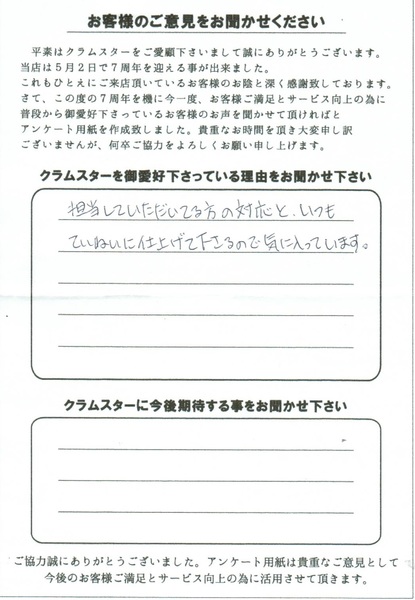 お客様のご意見をお聞かせください
平素はクラムスターをご愛顧下さいまして誠にありがとうございます。
当店は５月２日で７周年を迎える事が出来ました。
これもひとえにご来店頂いているお客様のお陰と深く感謝致しております。
さて、この度の７周年を機に今一度、お客様ご満足とサービス向上の為に
普段から御愛好下さっているお客様のお声を聞かせて頂ければと
アンケート用紙を作成致しました。貴重なお時間を頂き大変申し訳
ございませんが、何卒ご協力をよろしくお願い申し上げます。
クラムスターを御愛好下さっている理由をお聞かせ下さい
担当していただいてる方の対応と、いつも
ていねいに仕上げて下さるので気に入っています。
クラムスターに今後期待する事をお聞かせ下さい
ご協力誠にありがとうございました。アンケート用紙は貴重なご意見として
今後のお客様ご満足とサービス向上の為に活用させて頂きます。